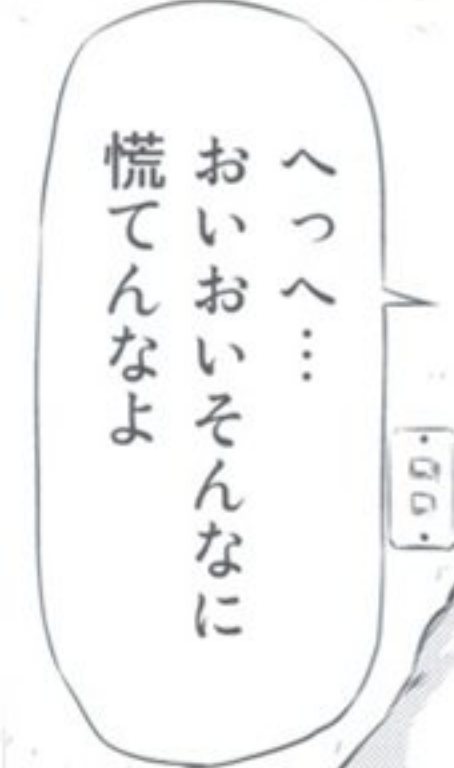 へっへ…
おいおいそんなに
慌てんなよ